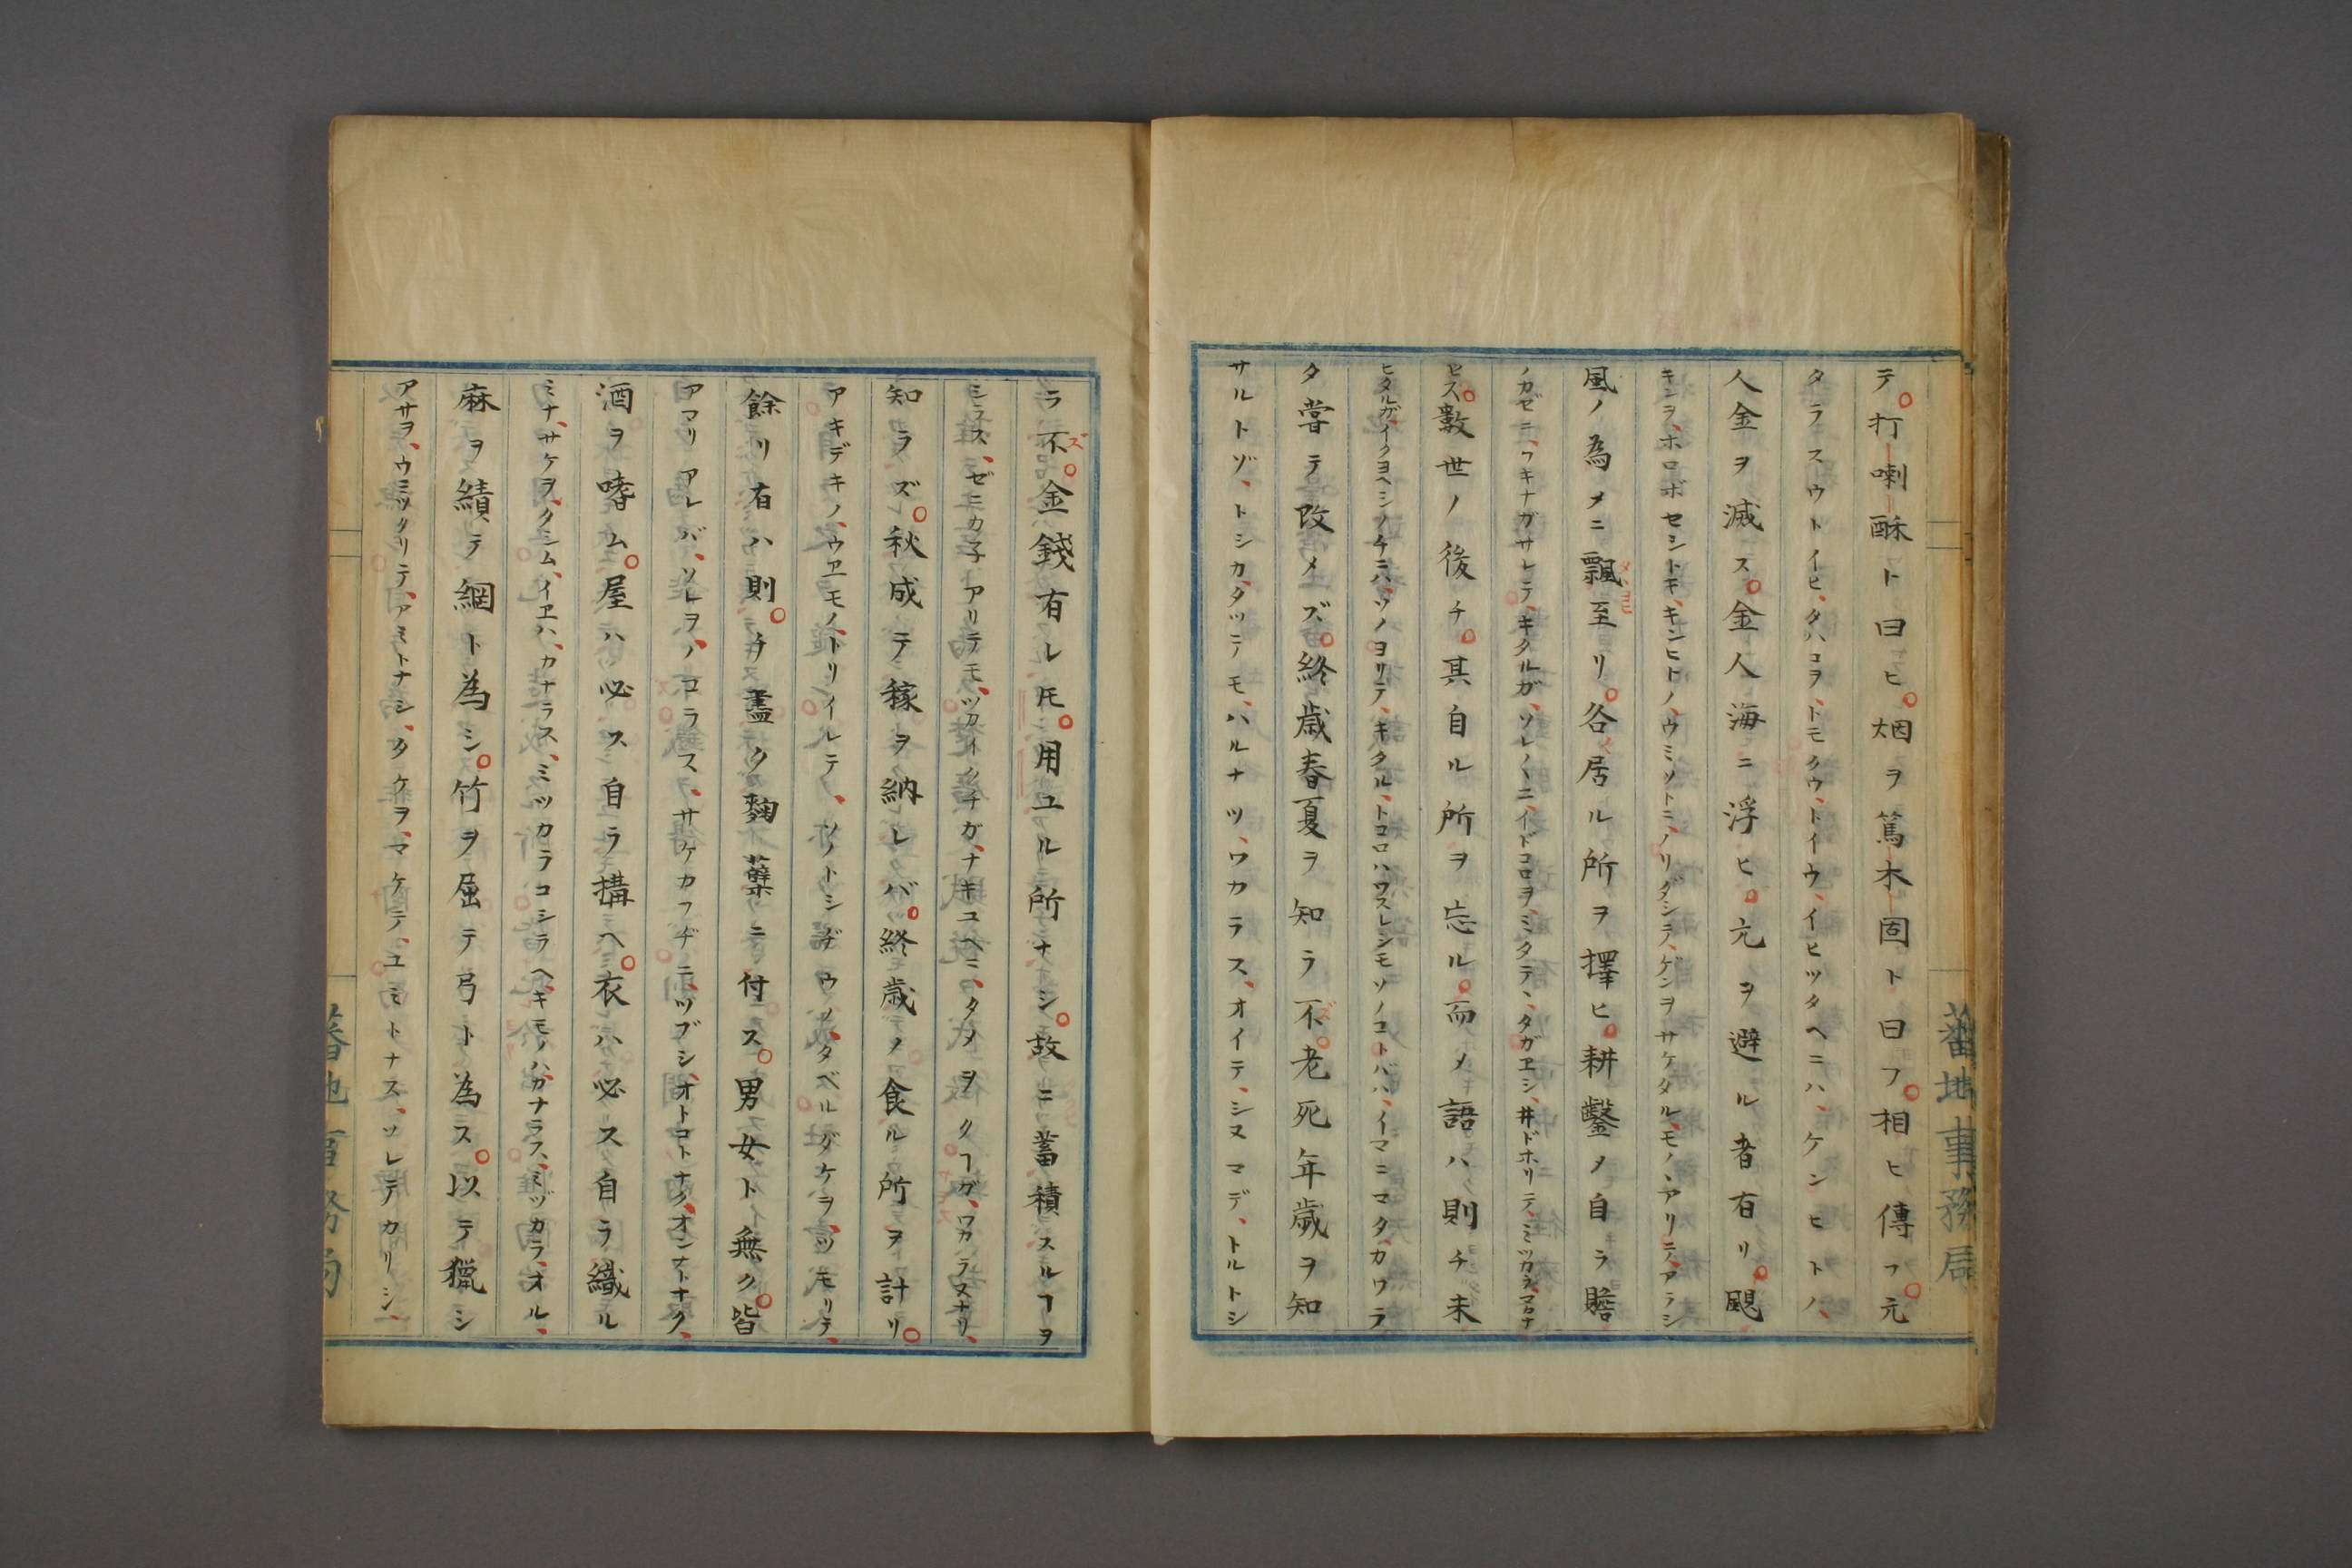 テ。打喇酥ト曰ヒ。烟ヲ篤木固ト曰フ。相ヒ傳フ。元
タラスウトイヒ、タハコヲ、トモクウ、トイウ、イヒツタヘニハ、ケンヒトノ、
人金ヲ滅ス。金人海ニ浮ヒ。元ヲ避ル者有リ。颶
キンヲ、ホロボセシトキ、キンヒトノ、ウミソトニ、ノリダシテ、ゲンヲサケタル、モノ、アリテ、アラシ
風ノ為メニ飄至リ。各居ル所ヲ擇ヒ。耕鑿ノ自ラ贍
ノカゼニ、フキナガサレテ、キタルガ、ソレ〳〵ニ、イドコロヲ、ミタテ、タガヱシ、井ドホリテ、ミツカラ、マカナ
ヒス。數世ノ後チ。其自ル所ヲ忘ル。而メ語ハ則チ未
ヒタルガ、イクヨヘシノチニハ、ソノヨリテ、キタル、トコロハ、ワスレシモソノコトバハ、イマニマタ、カワラ
タ甞テ改メズ。終歳春夏ヲ知ラ不。老死年歳ヲ知
サルトゾ、トシカ、タツテモ、ハルナツ、ワカラス、オイテ、シヌマデ、トルトシ
蕃地事務局
ラ不。金錢有レ𪜈。用ユル所ナシ。故ニ蓄積スルヿヲ
シラス、ゼニカ子アリテモ、ツカイクチガ、ナキユヘニ、タメヲクヿガ、ワカラヌナリ、
知ラズ。秋成テ稼ヲ納レバ。終歳ノ食ル所ヲ計リ。
アキデキノ、ウヱモノ、トリイレテ、ソノトシヂウノ、タベルダケヲ、ツモリテ、
餘リ有ハ則。チ盡ク麴蘗ニ付ス。男女ト無ク。皆
アマリアレバ、ソレヲ、ノコラス、サケカフヂニ、ツブシ、オトコトナク、オンナトナク、
酒ヲ嗜ム。屋ハ必ス自ラ搆ヘ。衣ハ必ス自ラ織ル
ミナ、サケヲ、タシム、イヱハ、カナラス、ミツカラコシラヘ、キモノハ、カナラス、ミヅカラ、オル、
麻ヲ績テ綱ト為シ。竹ヲ屈テ弓ト為ス。以テ獵シ
アサヲ、ウミツクリテ、アミトナシ、タケヲ、マゲテ、ユミトナス、ソレデカリシ、